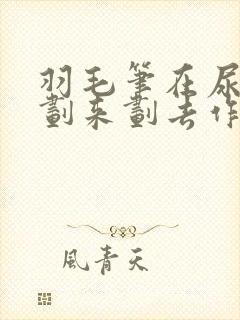 羽毛筆在尿
劃來劃去作
風青天